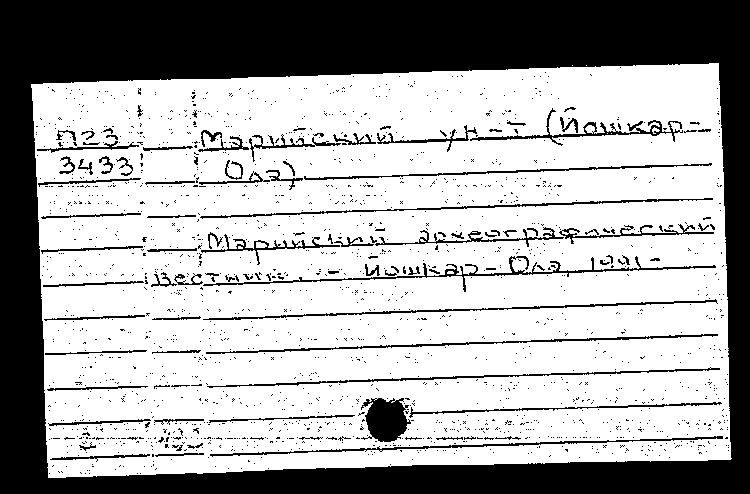 П23
3433
Марийский ун-т (Йошкар-
Ола).
Марийский археографический
вестник. - Йошкар-Ола, 1991-